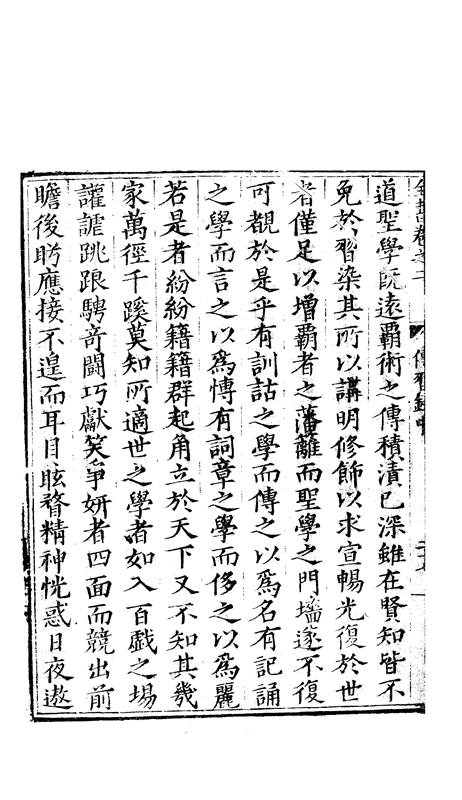 全書卷之二 傳習錄中
道聖學既遠霸術之傳積漬已深雖在賢知皆不
免於習染其所以講明修飾以求宣暢光復於世
者僅足以增霸者之藩籬而聖學之門墻遂不復
可覩於是乎有訓詁之學而傳之以爲名有記誦
之學而言之以爲愽有詞章之學而侈之以爲麗
若是者紛紛籍籍群起角立於天下又不知其幾
家萬徑千蹊莫知所適世之學者如入百戲之場
讙謔跳踉騁奇鬪巧獻笑爭妍者四面而競出前
瞻後盻應接不遑而耳目眩瞀精神恍惑日夜遨